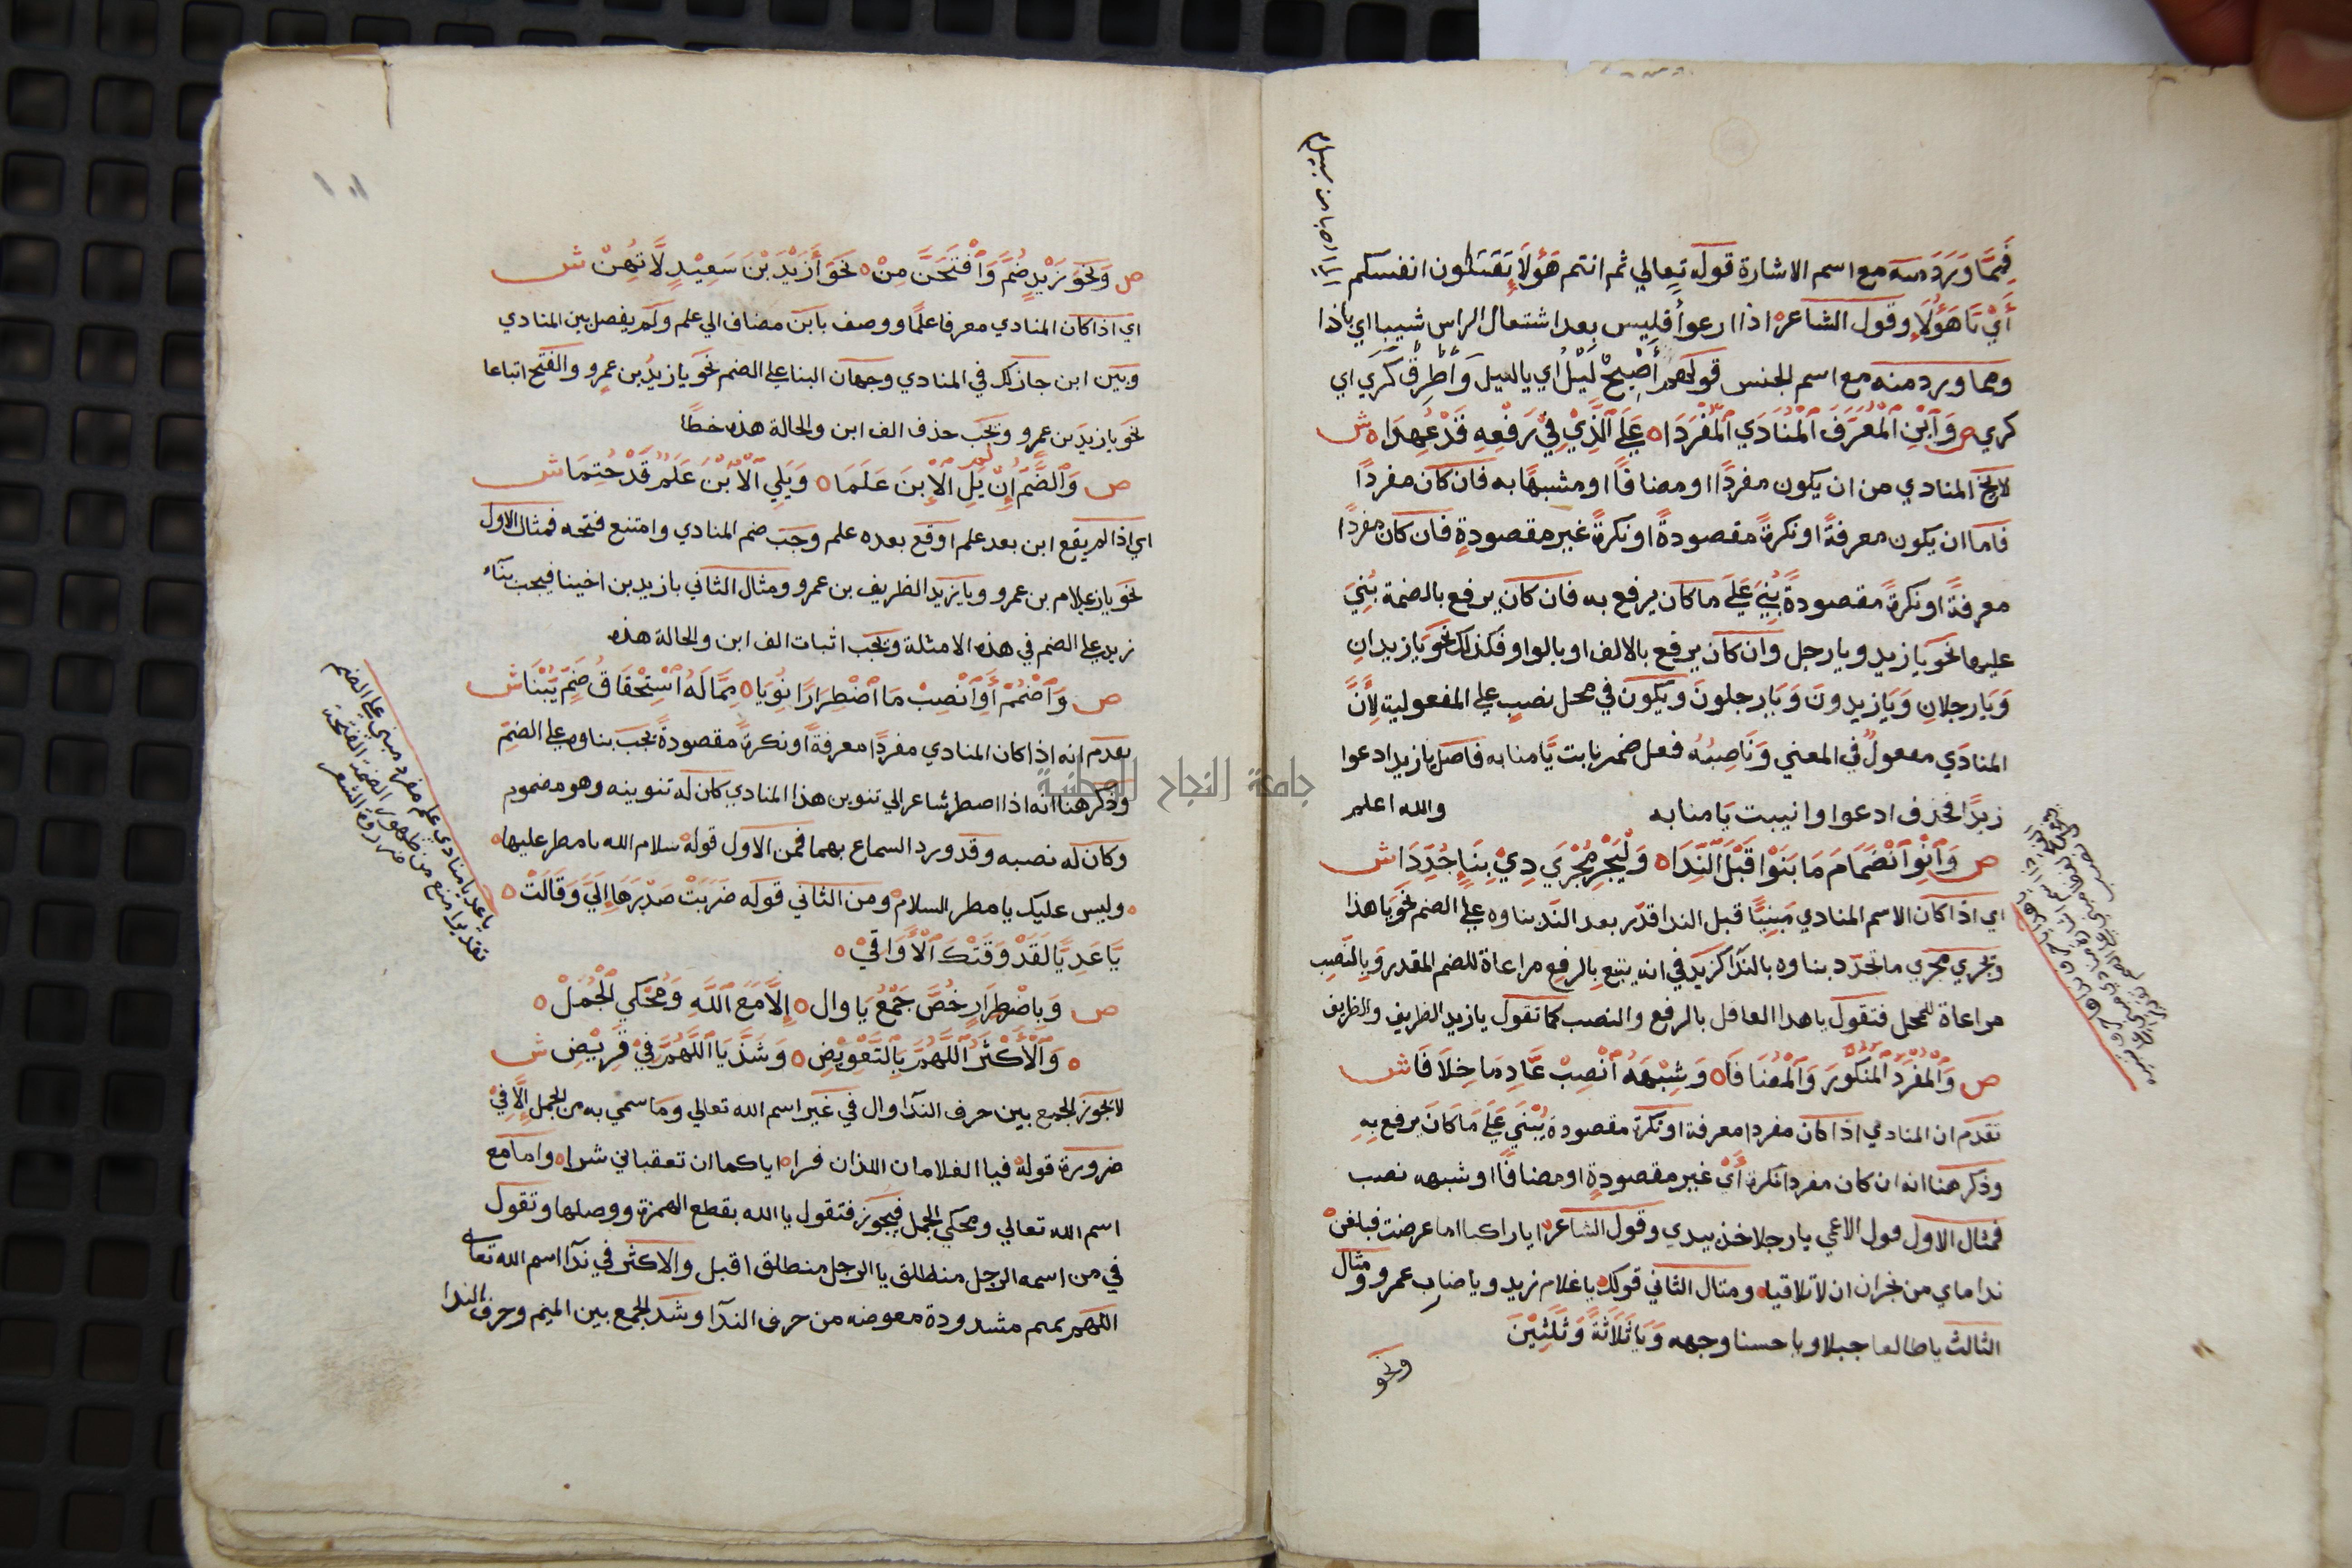 فمما ورد منه مع اسم الاشارة قوله تعالي ثم انتم هؤلاء تقتلون انفسكم
أي يا هؤلاء وقول الشاعر ذا ارعوأ فليس بعد اشتعال الراس شيبا اي ياذا
ومما ورد منه مع اسم الجنس قولهم أصبح ليل أي ياليل وأطرق كري اي
كري ص وَابْنِ الْمُعَرَّفَ الْمُنَادَي الْمُفْرَدَا عَلَي الَّذِيْ فِيْ رَفْعِهِ قَدْ عُهِدَا ش
لايخ المنادي من ان يكون مفردًا او مضافًا او مشبهًا به فان كان مفردًا
فاما ان يكون معرفةً او نكرةً مقصودةً او نكرةً غير مقصودةٍ فان كان مفردًا
معرفةً او نكرةً مقصودةً بُنِيَ عَلَي ما كان يرفع به فان كان يرفع بالضمة بُنِيَ
عليها نحو يا زيد ويا رجل وان كان يرفع بالالف او بالواو فكذلك نحو يا زيدانِ
وَيَا رجلانِ وَيَا زيدونَ وَيَا رجلونَ ويكون في محل نصبٍ علي المفعولية لِأَنَّ
المنادَي مفعولٌ في المعني وَنَاصِبُهُ فعل ضمر نابت يَا منابه فاصل يا زيد ادعوا
زيدًا فحذف ادعوا وانيبت يَا منابه والله اعلم
ص وَانْوِ انْضِمَامَ مَا بَنَوْا قَبْلَ النِّدَا وَلْيُجْرَ مُجْرَي ذِيْ بِنَاءٍ جُدِّدَا ش
اي اذا كان الاسم المنادي مَبنِيًّا قبل الندا قدر بعد الندا بناوه علي الضم نحو يا هذا
ويجري مجري ما تجدد بناوه بالندا كزيد في انه يتبع بالرفع مراعاة للضم المقدر وَبالنصب
مراعاة للمحل فتقول يا هذا العاقل بالرفع والنصب كما تقول يا زيد الظريف والظريف
ص وَالْمُفْرَدَ الْمَنْكُوْرَ وَالْمُضَافَا وَشِبْهَهُ انْصِبْ عَادِمًا خِلَافَا ش
تقدم ان المنادي اذا كان مفردا معرفة او نكرة مقصودة يُبْنَي عَلَي مَا كَانَ يرفع بِهِ
وذكر هنا انه ان كان مفردا نكرة أي غير مقصودةٍ او مضافًا او شبهه نصب
فمثال الاول قول الاعمي يا رجلا خذ بيدي وقول الشاعر ايا راكبا اما عرضت فبلغنْ
نداماي من نجران ان لا تلاقيا ومثال الثاني قولك يا غلام زيد ويا ضارب عمرو ومثال
الثالث يا طالعا جبلا ويا حسنا وجهه وَيَا ثَلَاثَةً وَثَلَثِيْنَ
ونحو
ص وَنَحْوَ زَيْدٍ ضُمَّ وَافْتَحَنَّ مِنْ نَحْوِ أَزَيْدَ بْنَ سَعِيْدٍ لَا تَهِنْ ش
اي اذا كان المنادي معرفا علمًا ووصف بابن مضاف الي علم ولم يفصل بين المنادي
وبين ابن جاز لك في المنادي وجهان البنا علي الضم نحو يا زيدُ بن عمرو والفتح اتباعا
نحو يا زيدَ بن عمرو ويجب حذف الف ابن والحالة هذه خطًا
ص وَالضَّمُّ إِنْ لم يَلِ الْإِبْنَ عَلَمَا وَيَلِي الْأِبْنَ عَلَمٌ قَدْ حُتِمَا ش
اي اذا لم يقع ابن بعد علم او قع بعده علم وجب ضم المنادي وامتنع فتحه فمثال الاول
نحو يا غلام بن عمرو ويا يزيد الظريف بن عمرو ومثال الثاني يا زيد بن اخينا فيجب بناء
زيد علي الضم في هذه الامثلة ويجب اثبات الف ابن والحالة هذه
ص وَاضْمُمْ أَوِ انْصِبْ مَا اضْطِرَارًا نُوِّيَا مِمَّا لَهُ اسْتِحْقَاقُ ضَمٍّ يُبْنَا ش
تقدم انه اذا كان المنادي مفردًا معرفةً او نكرةً مقصودةً يجب بناوه علي الضمِّ
وذكر هنا انه اذا اضطر شاعر الي تنوين هذا المنادي كان له تنوينه وهو مضموم
وكان له نصبه وقد ورد السماع بهما فمن الاول قوله سلام الله يا مطر عليها
وليس عليك يا مطر السلام ومن الثاني قوله ضَرَبَتْ صَدْرَهَا إِلَيَّ وَقَالَتْ
يَا عَدِيًّا لَقَدْ وَقَتْكَ الْأَوَاقِيْ
ص وَبِاضْطِرَارٍ خُصَّ جَمْعُ يَا وال إِلَّا مَعَ اللَّهِ وَمُحْكِي الْجُمَلْ
وَالْأَكْثَرُ اللَّهُمَّ بِالتَّعْوِيْضِ وَشَذَّ يَا اللَّهُمَّ فِيْ قَرِيْضِ ش
لا يجوز الجمع بين حرف الندا وال في غير اسم الله تعالي وما سمي به من الجمل إلَّا فِيْ
ضرورة قوله فيا الغلامان اللذان فرا اياكما ان تعقباني شرا واما مع
اسم الله تعالي ومحكي الجمل فيجوز فتقول يا الله بقطع الهمزة ووصلها وتقول
في من اسمه الرجل منطلق يا الرجل منطلق اقبل والاكثر في ندآ اسم الله تعا
اللهم بميم مشدودة معوضه من حرف الندآ وشذ الجمع بين الميم وحرف الندا
يا عديا منادي علم مفرد مبني علي الضم
تقديرا منع من ظهور الضمة الفتحة
ضرورة الشعر
جامعة النجاح الوطنية